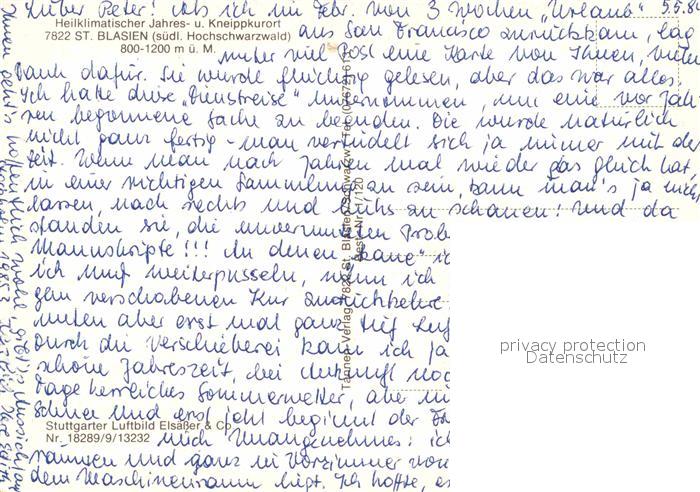 Lieber Peter! Als ich im Febr. von 3 Wochen „Urlaub" 5.5.8
Heilklimatischer Jahres- u. Kneippkurort
7822 ST. BLASIEN (südl. Hochschwarzwald)
800-1200 m ü. M.
aus San Francisco zurückkam, lag
unter viel Post eine Karte von Ihnen, vielen
Dank dafür. Sie wurde flüchtig gelesen, aber das war alles.
Ich hatte diese „Dienstreise" unternommen, um eine vor Jah-
ren begonnene Sache zu beenden. Die wurde natürlich
nicht ganz fertig - man verzettelt sich ja immer mit der
Zeit. Wenn man nach Jahren mal wieder das Glück hat
in einer richtigen Sammlung zu sein, kann man's ja nicht
lassen, nach rechts und links zu schauen! Und da
standen sie, die unvermuteten Prob
Manuskripte!!! An denen
ich muß weiterpusseln, wenn ich
gen verschobenen Kur zurückkehre
unten aber erst mal ganz tief Luft
Durch die Verschieberei kam ich ja
schöne Jahreszeit, bei Ankunft noch
Tage herrliches Sommerwetter, aber
Schnee und erst jetzt beginnt der
Stuttgarter Luftbild Elsäßer & Co.
Nr. 18289/9/13232
mich Unangenehmes: ich
und ganz in Vorzimmer
dem Maschinenraum liegt. Ich hoffe, es
Ihnen geht's hoffentlich wohl
Tannen-Verlag, 7822 St. Blasien/Schwarzw., Tel. (07672)
Best.-Nr. 1/120
privacy protection
Datenschutz